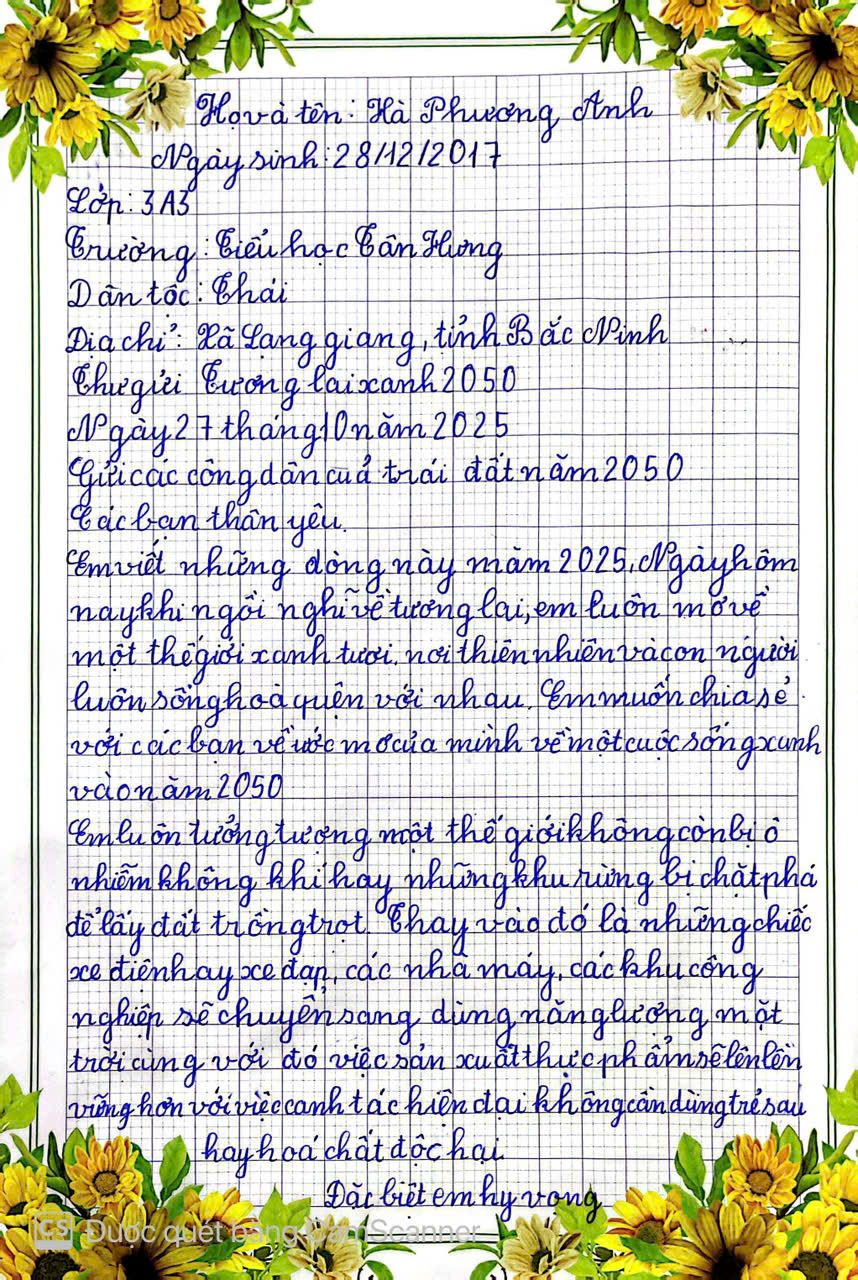 Họ và tên: Hà Phương Anh
Ngày sinh: 28/12/2017
Lớp: 3A3
Trường: Tiểu học Tân Hưng
Dân tộc: Thái
Địa chỉ: Xã Lạng giang, tỉnh Bắc Ninh
Thư gửi Tương lai xanh 2050
Ngày 27 tháng 10 năm 2025
Gửi các công dân cuả trái đất năm 2050
Các bạn thân yêu.
Em viết những dòng này măm 2025. Ngày hôm
nay khi ngồi nghĩ về tương lai, em luôn mơ về
một thế giới xanh tươi, nơi thiên nhiên và con người
luôn sống hoà quện với nhau. Em muốn chia sẻ
với các bạn về ước mơ của mình về một cuộc sống xanh
vào năm 2050
Em luôn tưởng tượng một thế giới không còn bị ô
nhiễm không khí hay những khu rừng bị chặt phá
để lấy đất trồng trọt. Thay vào đó là những chiếc
xe điện hay xe đạp, các nhà máy, các khu công
nghiệp sẽ chuyển sang dùng năng lượng mặt
trời cùng với đó việc sản xuất thực phẩm sẽ lên lền
vững hơn với việc canh tác hiện đại không cần dùng trẻ sau
hay hoá chất độc hại.
Đặc biệt em hy vọng
CS Được quét bằng CamScanner